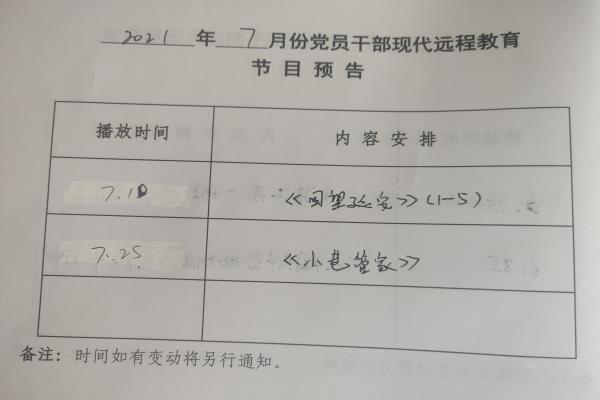 2021年7月份党员干部现代远程教育
节目预告
播放时间 内容安排
7.10 《回望延安》(1-5)
7.25 《小巷管家》
备注：时间如有变动将另行通知。